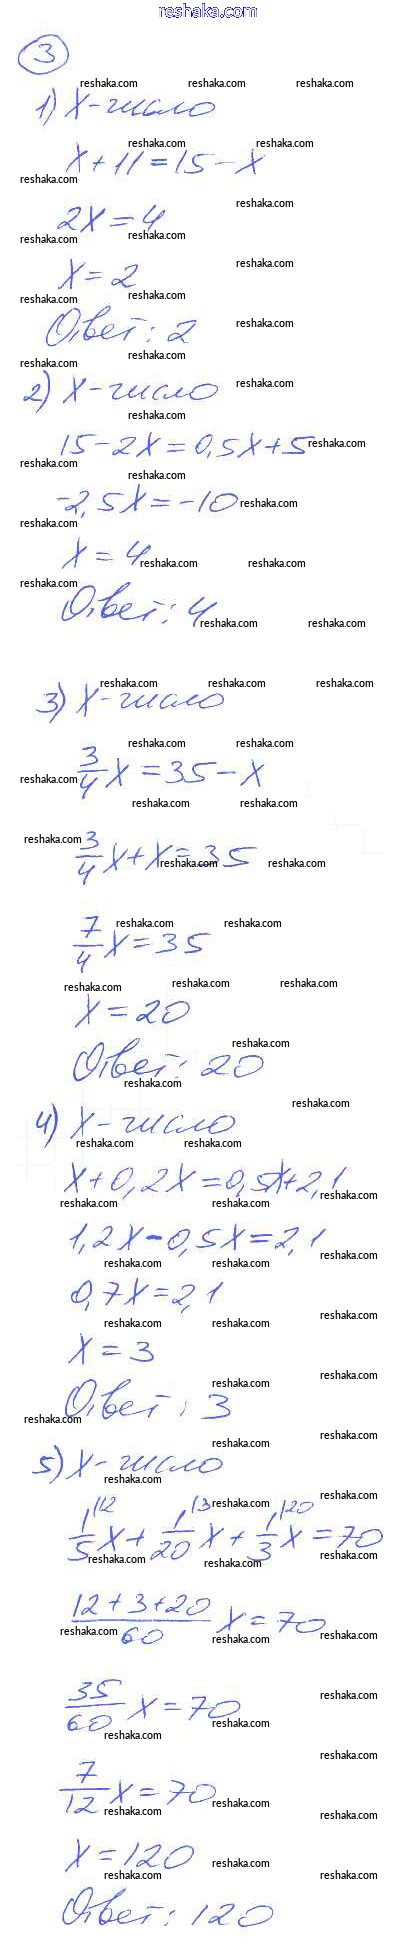 reshaka.com
3
1) x - число
x + 11 = 15 - x
2x = 4
x = 2
Ответ: 2
2) x - число
15 - 2x = 0,5x + 5
-2,5x = -10
x = 4
Ответ: 4
3) x - число
3/4 x = 35 - x
3/4 x + x = 35
7/4 x = 35
x = 20
Ответ: 20
4) x - число
x + 0,2x = 0,5x + 2,1
1,2x - 0,5x = 2,1
0,7x = 2,1
x = 3
Ответ: 3
5) x - число
1/5 |12 x + 1/20 |3 x + 1/3 |20 x = 70
(12 + 3 + 20)/60 x = 70
35/60 x = 70
7/12 x = 70
x = 120
Ответ: 120